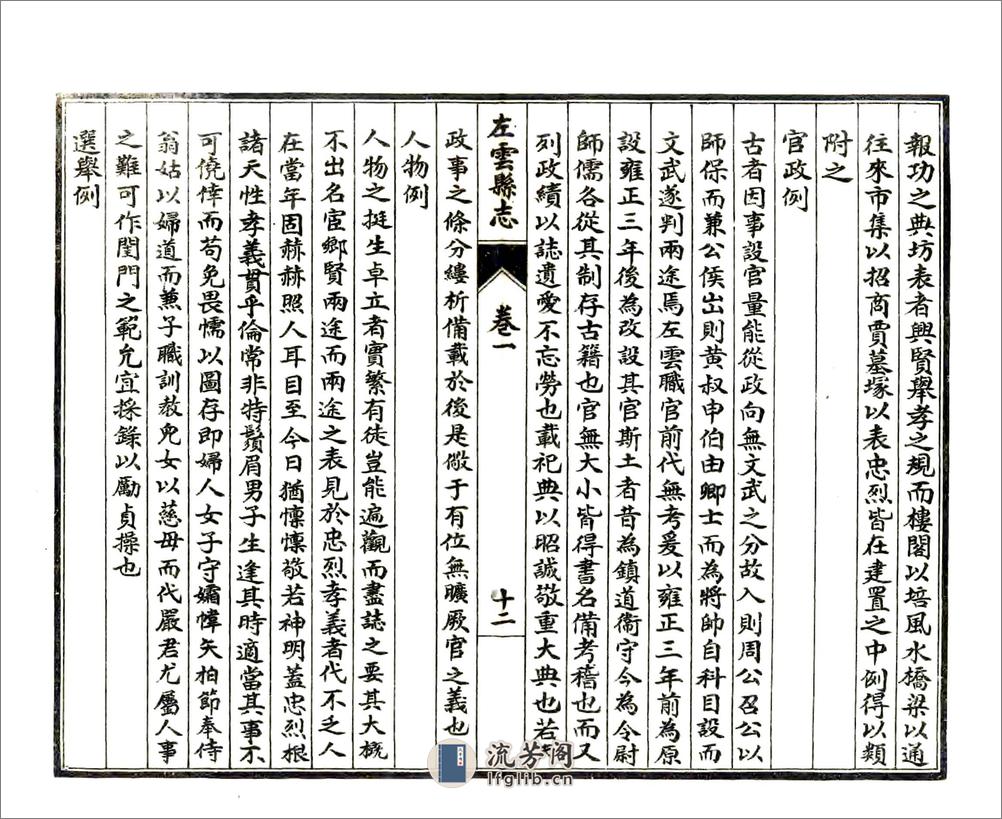 報功之典坊表者興賢舉孝之規而樓閣以培風水橋梁以通
往來市集以招商賈墓塚以表忠烈皆在建置之中例得以類
附之
官政例
古者因事設官量能從政向無文武之分故入則周公召公以
師保而兼公侯出則黄叔申伯由卿士而為將帥自科目設而
文武遂判兩途焉左雲職官前代無考爰以雍正三年前為原
設雍正三年後為改設其官斯土者昔為鎮道衞守今為令尉
師儒各從其制存古籍也官無大小皆得書名備考稽也而又
列政績以誌遺愛不忘勞也載祀典以昭誠敬重大典也若夫
左雲縣志
卷一
十二
政事之條分縷析備載於後是儆于有位無曠厥官之義也
人物例
人物之挺生卓立者實繁有徒豈能遍觀而盡誌之要其大概
不出名宦鄉賢兩途而兩途之表見於忠烈孝義者代不乏人
在當年固赫赫照人耳目至今日猶懍懍敬若神明蓋忠烈根
諸天性孝義貫乎倫常非特鬚眉男子生逢其時適當其事不
可僥倖而苟免畏懦以圖存即婦人女子守孀幃矢柏節奉侍
翁姑以婦道而兼子職訓教兒女以慈母而代嚴君尤屬人事
之難可作閨門之範允宜採錄以勵貞操也
選舉例
流芳阁
lfglib.cn